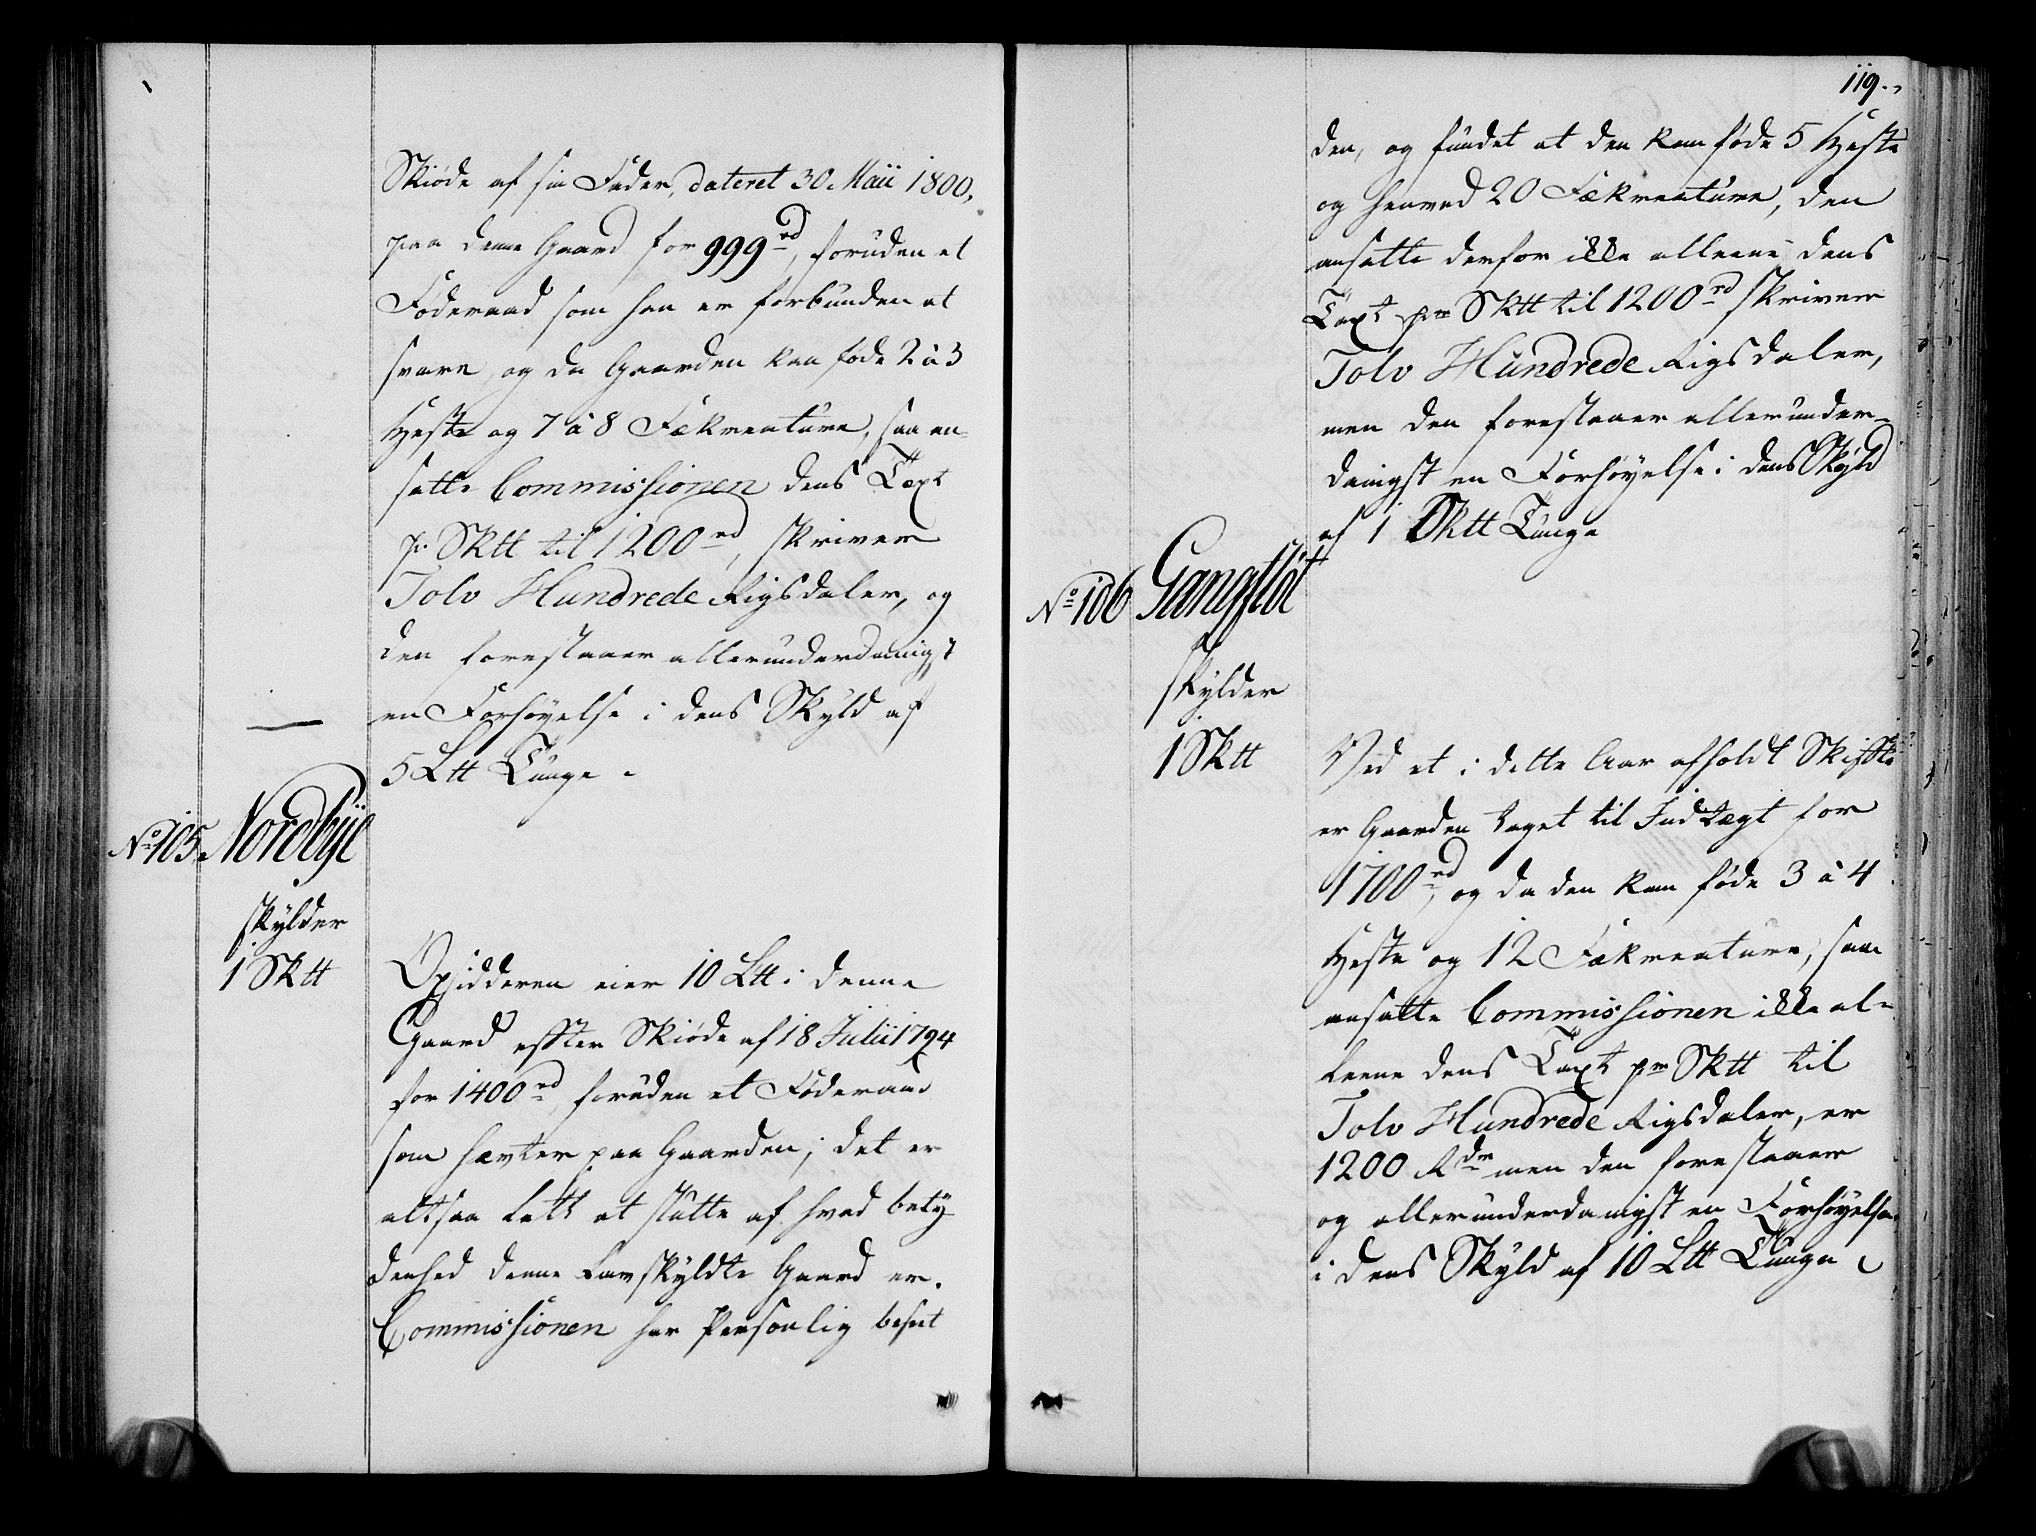 Skiøde af sin Fader, dateret 30 Maii 1800,
paa denne Gaard for 999 rd, foruden et
Føderaad som han er forbunden at
svare, og da Gaarden kan føde 2 à 3
Heste og 7 à 8 Fækreature, saa an-
satte Commissionen dens Taxt
pr Sktt til 1200 rd, skriver
Tolv Hundrede Rigsdaler, og
den forestaaer allerunderdanigst
en Forhøyelse i dens Skyld af
5 Ltt Tunge.
No 105. Nordbÿe
skylder
1 Sktt
Opsidderen eier 10 Ltt i denne
Gaard effter Skiøde af 18 Julii 1794
for 1400 rd, foruden et Føderaad
som hæfter paa Gaarden; det er
altsaa let at slutte af hvad bety-
denhed denne Lavskyldte Gaard er.
Commissionen har Personlig beseet
119.
den, og fundet at den kan føde 5 Heste
og henved 20 Fækreature, den
ansatte derfor ikke alleene dens
Taxt pr Sktt til 1200 rd skriver
Tolv Hundrede Rigsdaler,
men den forestaaer allerunder-
danigst en Forhøyelse i dens Skyld
af 1 Sktt Tunge
No 106 Gangfløt
skylder
1 Sktt
Ved et i dette Aar afholdt Skiffte
er Gaarden taget til Indtægt for
1700 rd, og da den kan føde 3 à 4
Heste og 12 Fækreature, saa
ansatte Commissionen ikke al-
leene dens Taxt pr Sktt til
Tolv Hundrede Rigsdaler, er
1200 Rdr men den forestaaer
og allerunderdanigst en Forhøyelse
i dens Skyld af 10 Ltt Tunge